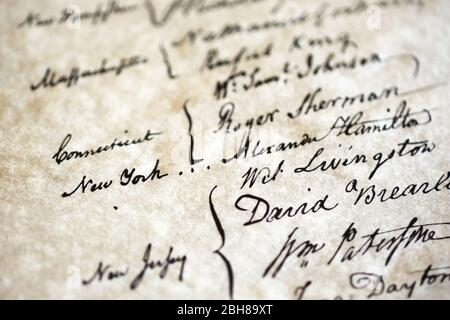 New Hampshire {
Nathaniel Gorham
Massachusetts { Rufus King
Wm. Saml. Johnson
Connecticut { Roger Sherman
New York . . . Alexander Hamilton
Wil: Livingston
David Brearley
New Jersey { Wm Paterson
Dayton
alamy
Image ID: 2BH89XT
www.alamy.com